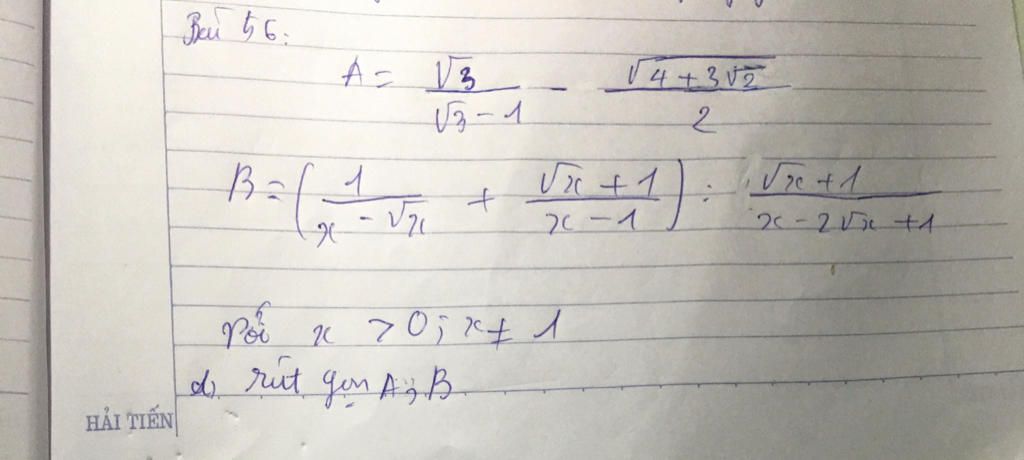 Bài 56:
A = √3/(√3 - 1) - √(4 + 3√2)/2
B = (1/(x - √x) + (√x + 1)/(x - 1)) : (√x + 1)/(x - 2√x + 1)
Với x > 0; x ≠ 1
a) rút gọn A; B
HẢI TIẾN